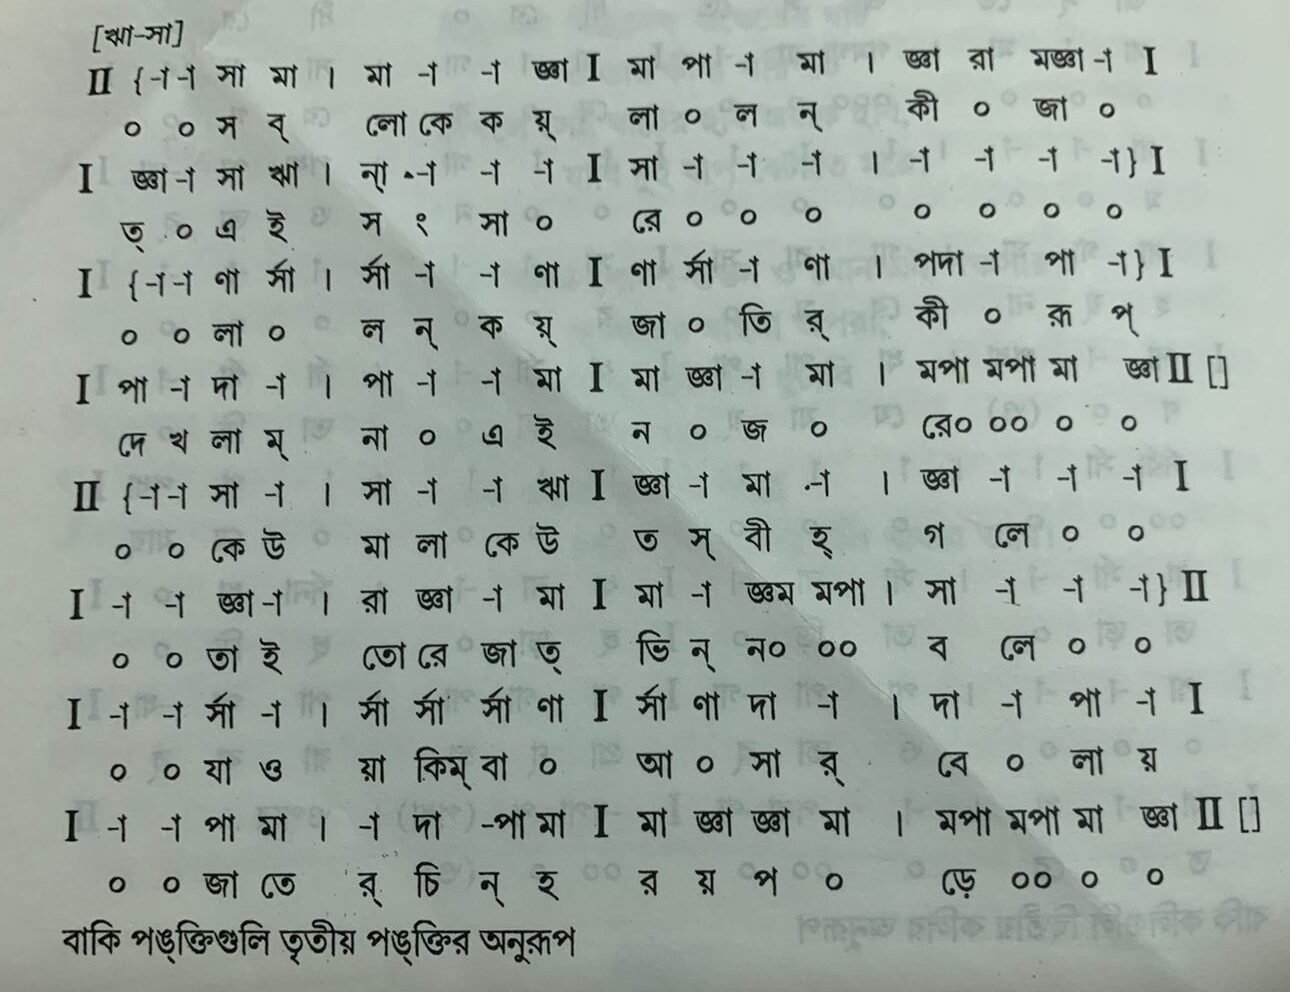 [ঋা-সা]
II {-া -া সা মা । মা -া -া জ্ঞা I মা পা -া মা । জ্ঞা রা মজ্ঞা -া I
০ ০ স ব্ লো কে ক য়্ লা ০ ল ন্ কী ০ জা ০
I জ্ঞা -া সা ঋা । ন্া -া -া -া I সা -া -া -া । -া -া -া -া} I
ত্ ০ এ ই স ং সা ০ রে ০ ০ ০ ০ ০ ০ ০
I {-া -া ণা র্সা । র্সা -া -া ণা I ণা র্সা -া ণা । পদা -া পা -া} I
০ ০ লা ০ ল ন্ ক য়্ জা ০ তি র্ কী ০ রূ প্
I পা -া দা -া । পা -া -া মা I মা জ্ঞা -া মা । মপা মপা মা জ্ঞা II []
দে খ লা ম্ না ০ এ ই ন ০ জ ০ রে০ ০০ ০ ০
II {-া -া সা -া । সা -া -া ঋা I জ্ঞা -া মা -া । জ্ঞা -া -া -া I
০ ০ কে উ মা লা কে উ ত স্ বী হ্ গ লে ০ ০
I -া -া জ্ঞা -া । রা জ্ঞা -া মা I মা -া জ্ঞম মপা । সা -া -া -া} II
০ ০ তা ই তো রে জা ত্ ভি ন্ ন০ ০০ ব লে ০ ০
I -া -া র্সা -া । র্সা র্সা র্সা ণা I র্সা ণা দা -া । দা -া পা -া I
০ ০ যা ও য়া কিম্ বা ০ আ ০ সা র্ বে ০ লা য়
I -া -া পা মা । -া দা -পা মা I মা জ্ঞা জ্ঞা মা । মপা মপা মা জ্ঞা II []
০ ০ জা তে র্ চি ন্ হ র য় প ০ ড়ে ০০ ০ ০
বাকি পঙ্‌ক্তিগুলি তৃতীয় পঙ্‌ক্তির অনুরূপ